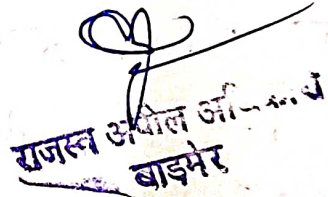 राजस्व अपील अधि
बाड़मेर